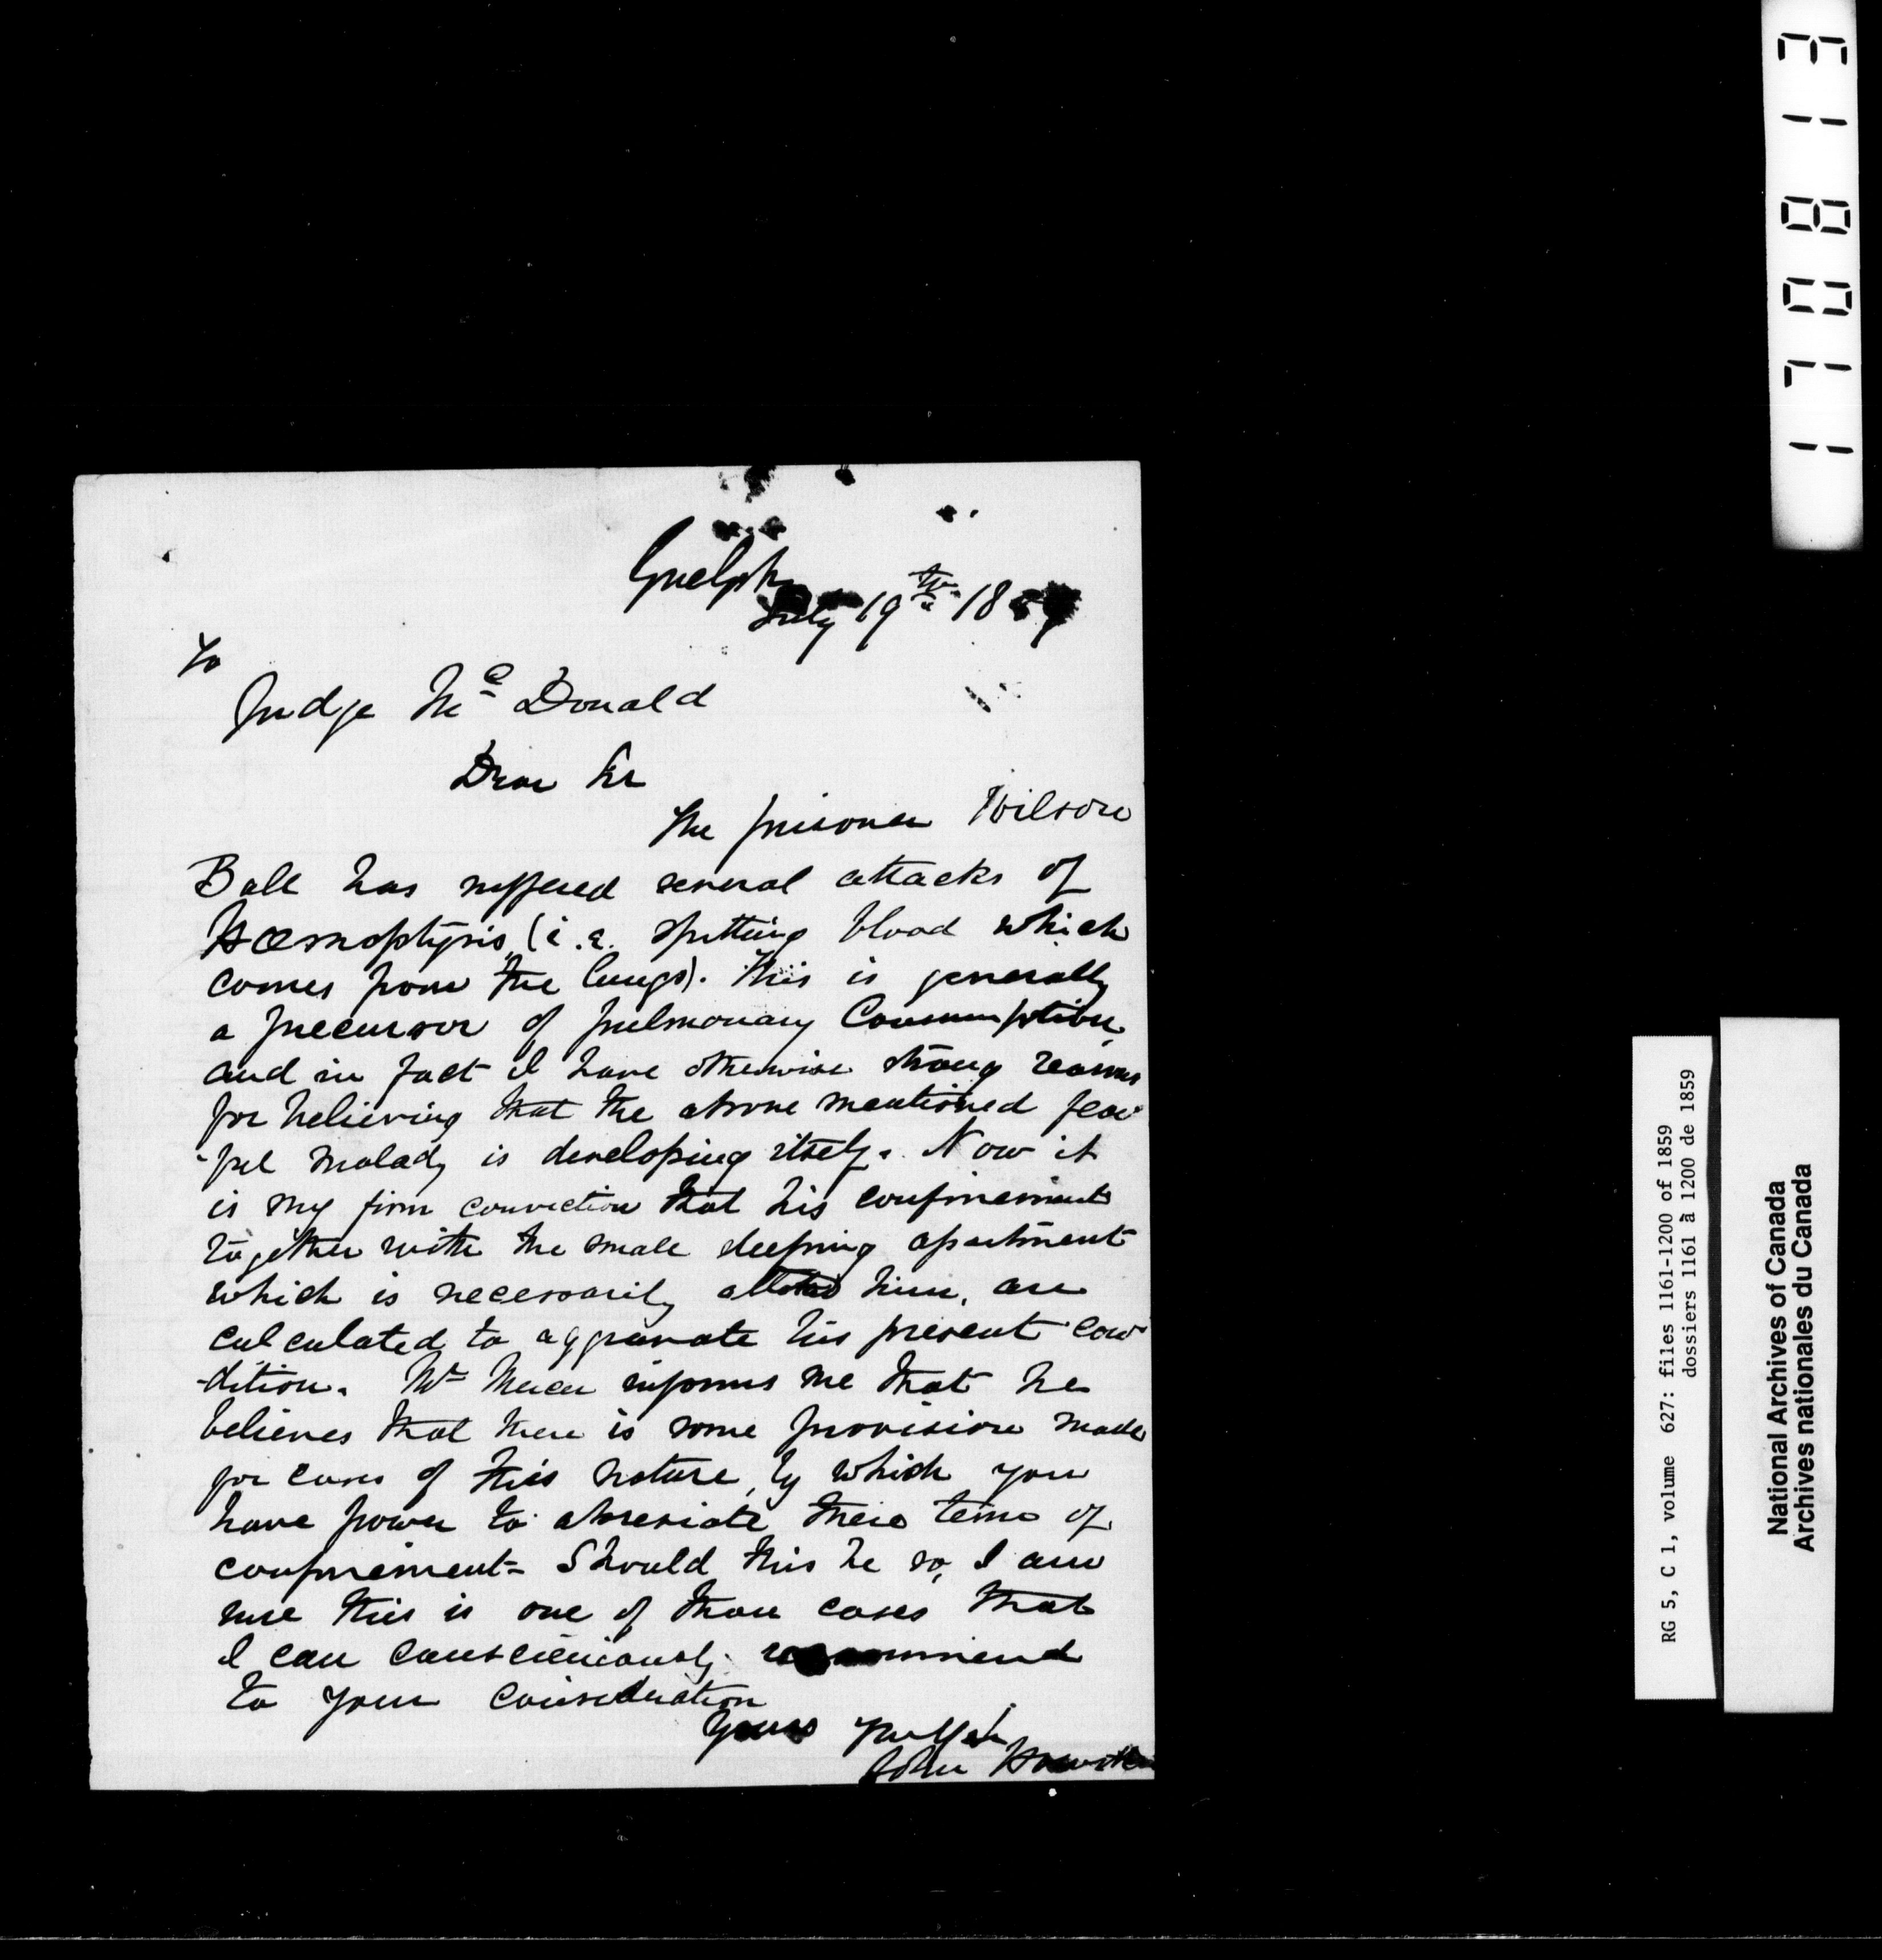 Guelph
July 19th 1859
To
Judge McDonald
Dear Sir
The prisoner Wilson
Ball has suffered several attacks of
Hœmoptysis, (i.e. spitting blood which
comes from the lungs). This is generally
a precursor of pulmonary Consumption,
and in fact I have otherwise strong reasons
for believing that the above mentioned fear
-ful malady is developing itself. Now it
is my firm conviction that his confinement
together with the small sleeping apartment
which is necessarily allotted him, are
calculated to aggravate his present con
-dition. Mr Mercer informs me that he
believes that there is some provision made
for cases of this nature, by which you
have power to abreviate their terms of
confinement - Should this be so, I am
sure this is one of those cases that
I can conscienciously recommend
to your consideration
Yours
John
RG 5, C 1, volume 627: files 1161-1200 of 1859
dossiers 1161 à 1200 de 1859
National Archives of Canada
Archives nationales du Canada
170813